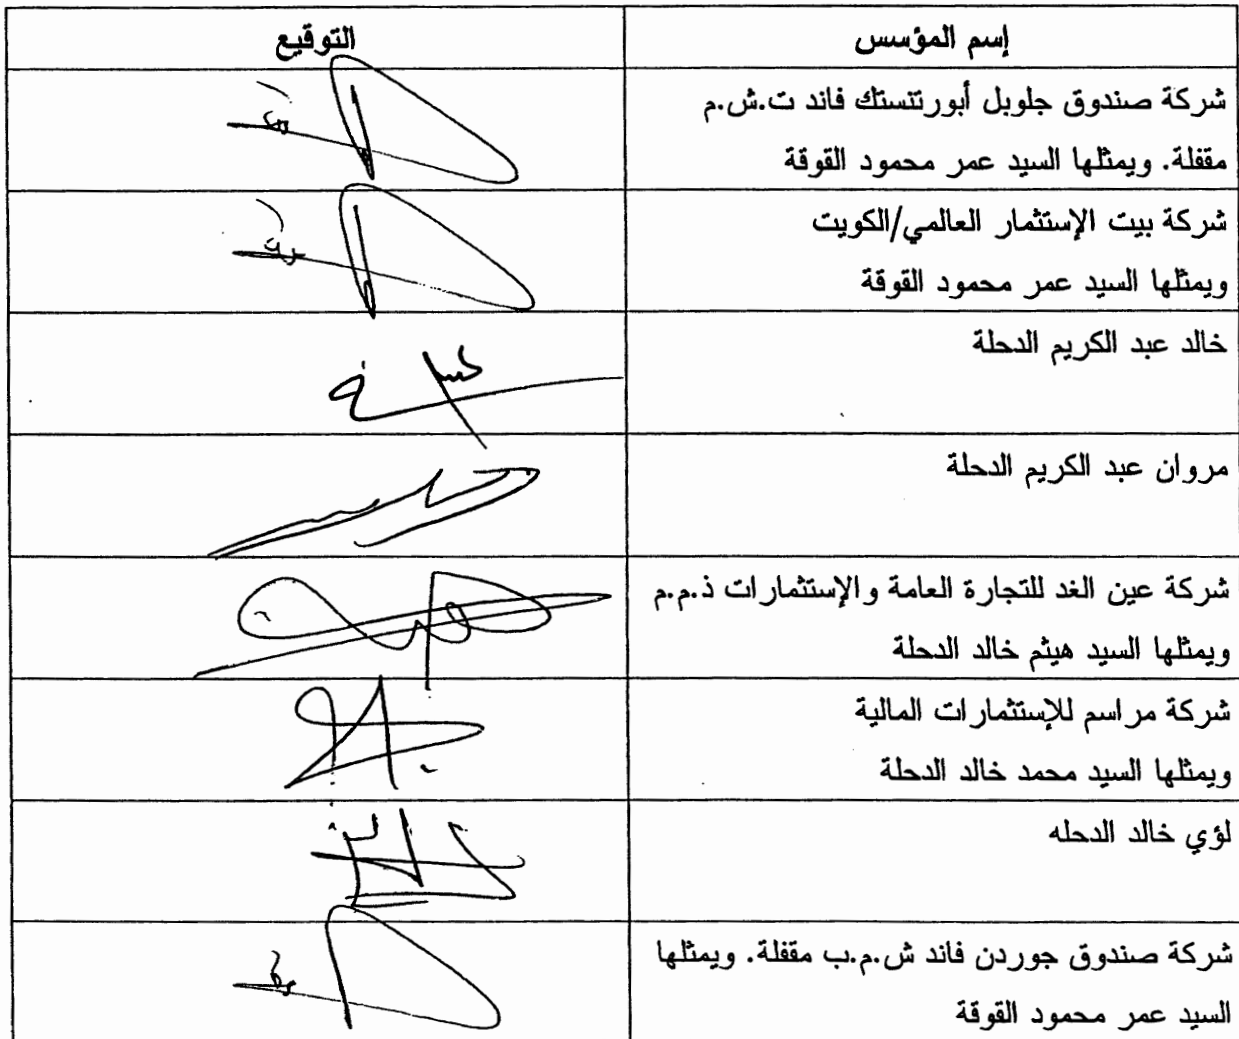 إسم المؤسس
التوقيع
شركة صندوق جلوبل أبورتنستك فاند ت.ش.م
مقفلة. ويمثلها السيد عمر محمود القوقة
شركة بيت الإستثمار العالمي/الكويت
ويمثلها السيد عمر محمود القوقة
خالد عبد الكريم الدحلة
مروان عبد الكريم الدحلة
شركة عين الغد للتجارة العامة والإستثمارات ذ.م.م
ويمثلها السيد هيثم خالد الدحلة
شركة مراسم للإستثمارات المالية
ويمثلها السيد محمد خالد الدحلة
لؤي خالد الدحله
شركة صندوق جوردن فاند ش.م.ب مقفلة. ويمثلها
السيد عمر محمود القوقة